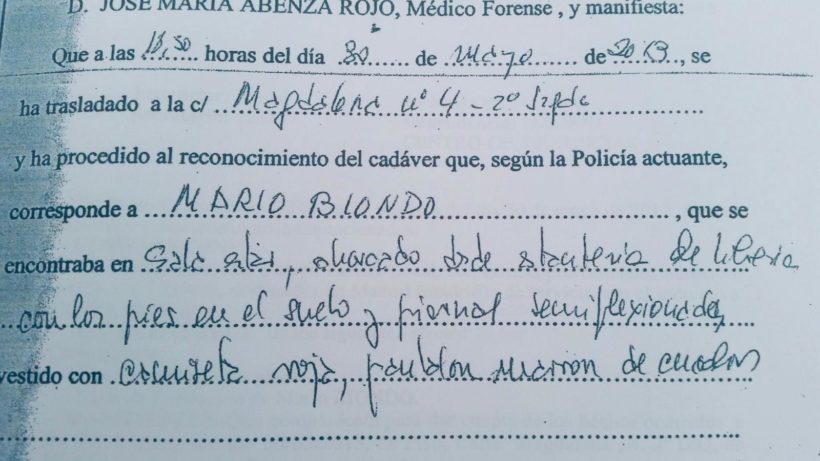 D. JOSÉ MARÍA ABENZA ROJO, Médico Forense , y manifiesta:
Que a las 18,30 horas del día 30 de Mayo de 2013, se
ha trasladado a la c/ Magdalena nº 4 - 2º Izqda
y ha procedido al reconocimiento del cadáver que, según la Policía actuante,
corresponde a MARIO BIONDO , que se
encontraba en Sala estar, ahorcado desde estantería de librería
con los pies en el suelo y piernas semiflexionadas,
vestido con camiseta roja, pantalón marrón de cuadros